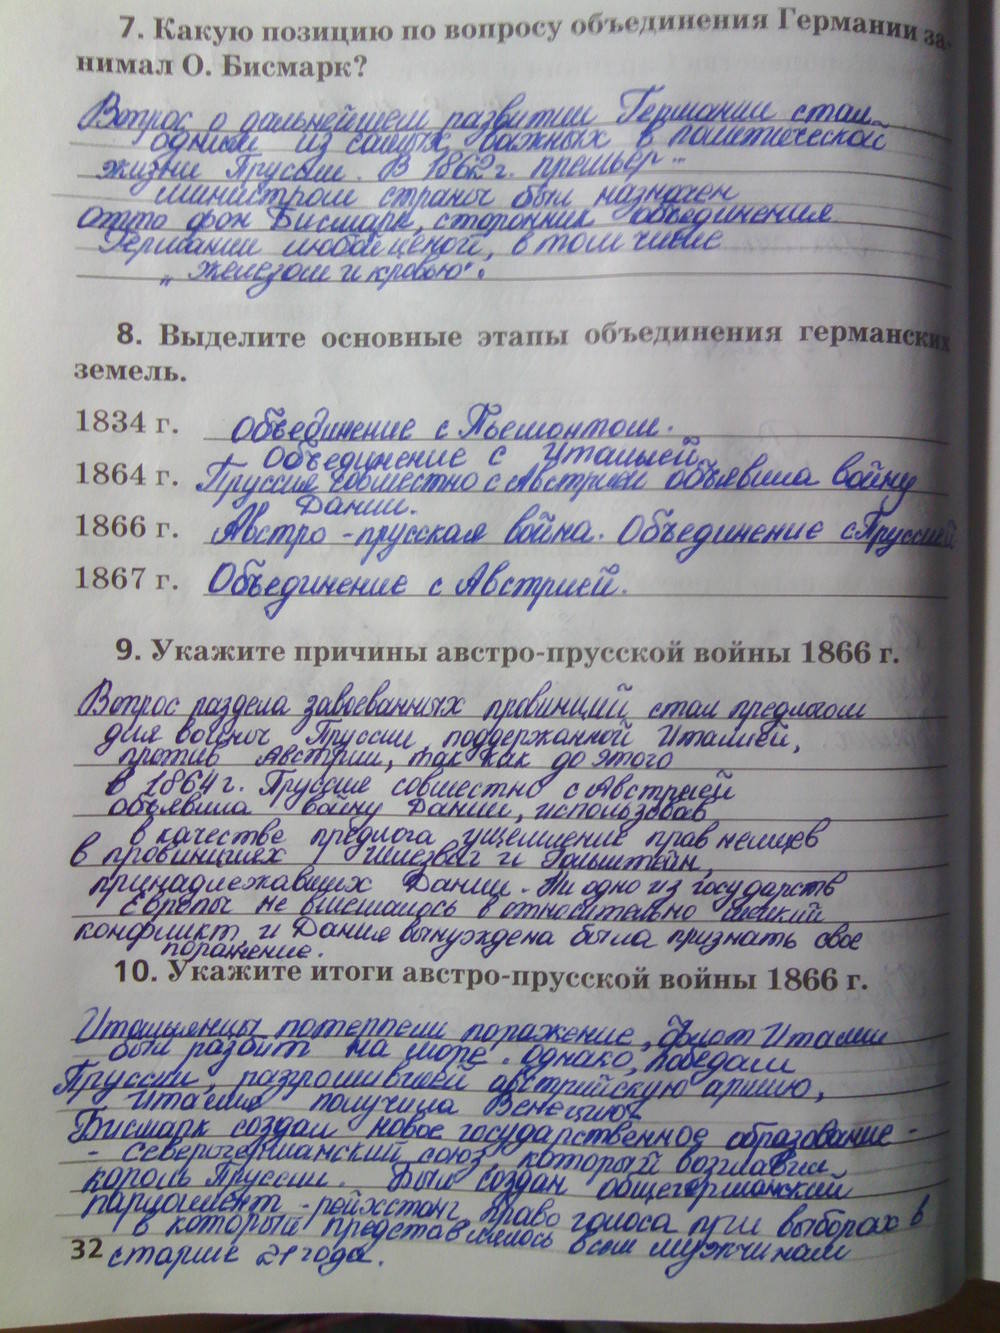 7. Какую позицию по вопросу объединения Германии за-
нимал О. Бисмарк?
Вопрос о дальнейшем развитии Германии стал
одним из самых важных в политической
жизни Пруссии. В 1862 г. премьер -
министром страны был назначен
Отто фон Бисмарк, сторонник объединения
Германии любой ценой, в том числе
„железом и кровью".
8. Выделите основные этапы объединения германских
земель.
1834 г. Объединение с Пьемонтом.
Объединение с Италией.
1864 г. Пруссия совместно с Австрией объявила войну
Дании.
1866 г. Австро-прусская война. Объединение с Пруссией
1867 г. Объединение с Австрией.
9. Укажите причины австро-прусской войны 1866 г.
Вопрос раздела завоеванных провинций стал предлогом
для войны Пруссии, поддержанной Италией,
против Австрии, так как до этого
в 1864 г. Пруссия совместно с Австрией
объявила войну Дании, использовав
в качестве предлога ущемление прав немцев
в провинциях Шлезваг и Гольштейн,
принадлежавших Дании. Ни одно из государств
Европы не вмешалось в относительно мелкий
конфликт, и Дания вынуждена была признать свое
поражение.
10. Укажите итоги австро-прусской войны 1866 г.
Итальянцы потерпели поражение, флот Италии
был разбит на море. Однако, победам
Пруссии, разгромившей австрийскую армию,
Италия получила Венецию.
Бисмарк создал новое государственное образование -
- Северогерманский союз, который возглавил
король Пруссии. Был создан общегерманский
парламент - рейхстаг, право голоса при выборах в
в который представлялось всем мужчинам
32 старше 21 года.